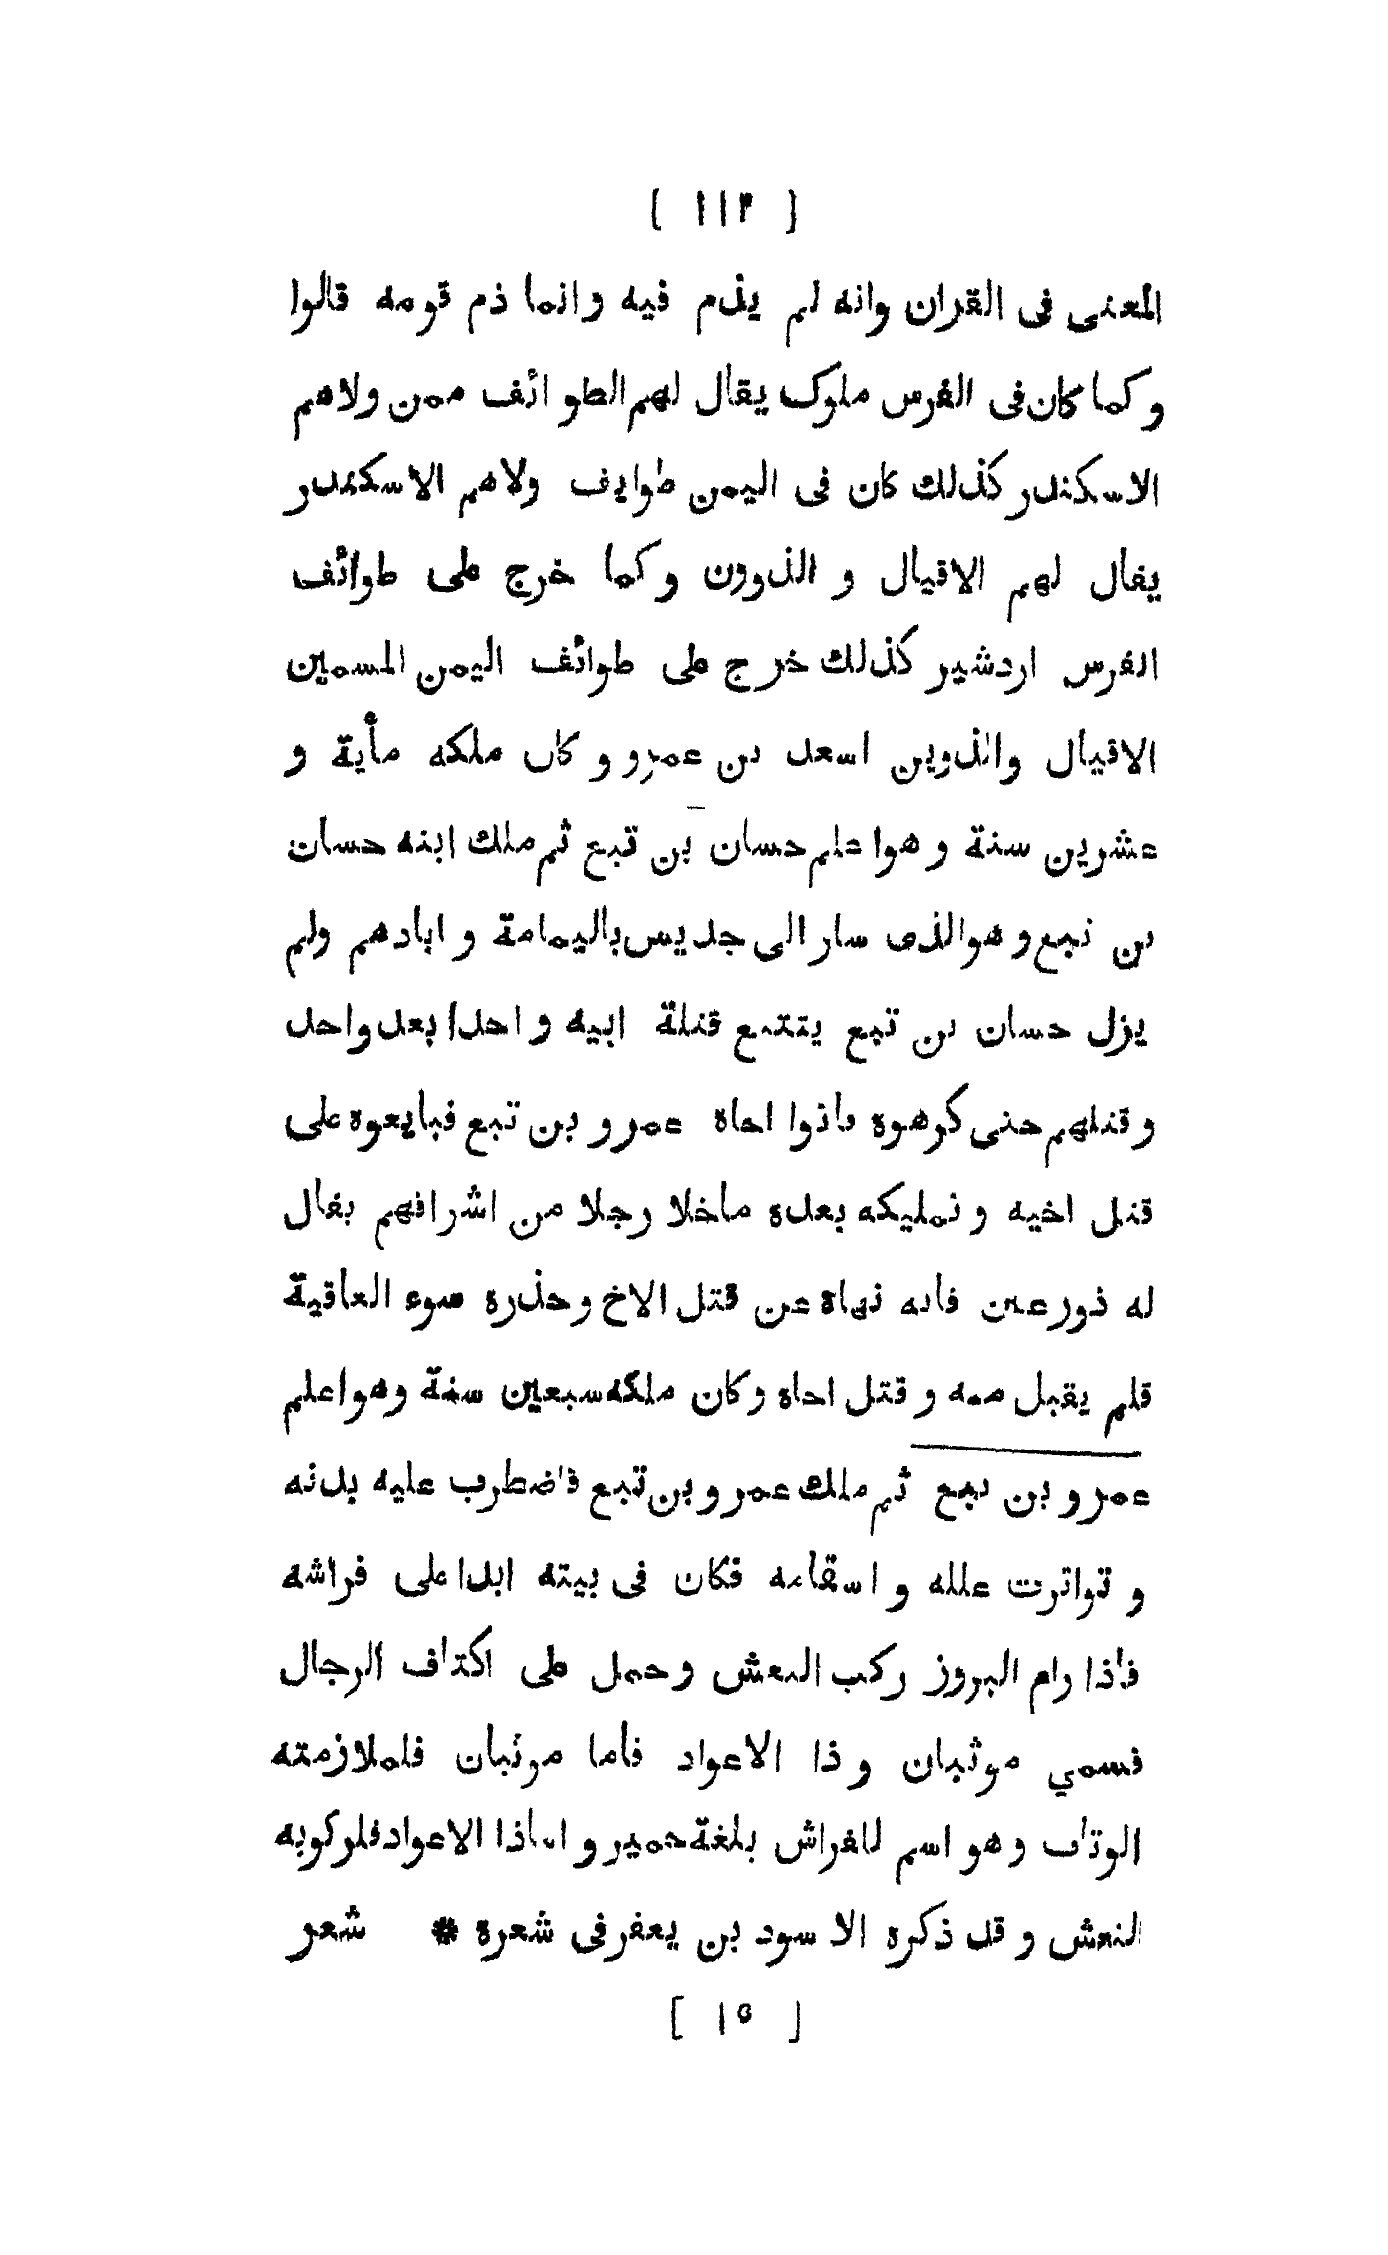 [ ١١٣ ]
المعنى فى القران وانه لم يذم فيه وانما ذم قومه قالوا
وكما كان فى الفرس ملوك يقال لهم الطوائف ممن ولاهم
الاسكندر كذلك كان فى اليمن طوايف ولاهم الاسكندر
يقال لهم الاقيال و الذوون وكما خرج على طوائف
الفرس اردشير كذلك خرج على طوائف اليمن المسمين
الاقيال والذوين اسعد بن عمرو وكان ملكه مأية و
عشرين سنة و هو اعلم حسان بن تبع ثم ملك ابنه حسان
بن تبع و هو الذى سار الى جديس باليمامة و ابادهم ولم
يزل حسان بن تبع يتتبع قتلة ابيه واحدا بعد واحد
وقتلهم حتى كرهوه فأذوا اخاه عمرو بن تبع فبايعوه على
قتل اخيه و تمليكه بعده ماخلا رجلا من اشرافهم يقال
له ذورعين فانه نهاه عن قتل الاخ وحذره سوء العاقبة
فلم يقبل منه و قتل اخاه وكان ملكه سبعين سنة وهو اعلم
عمرو بن تبع ثم ملك عمرو بن تبع فاضطرب عليه بدنه
و تواترت علله و اسقامه فكان فى بيته ابدا على فراشه
فاذا رام البروز ركب النعش وحمل على اكتاف الرجال
فسمي موثبان و ذا الاعواد فأما موثبان فلملازمته
الوثاب وهو اسم للفراش بلغة حمير و اماذا الاعواد فلركوبه
النعش و قد ذكره الا سود بن يعفر فى شعره * شعر
[ ١٥ ]